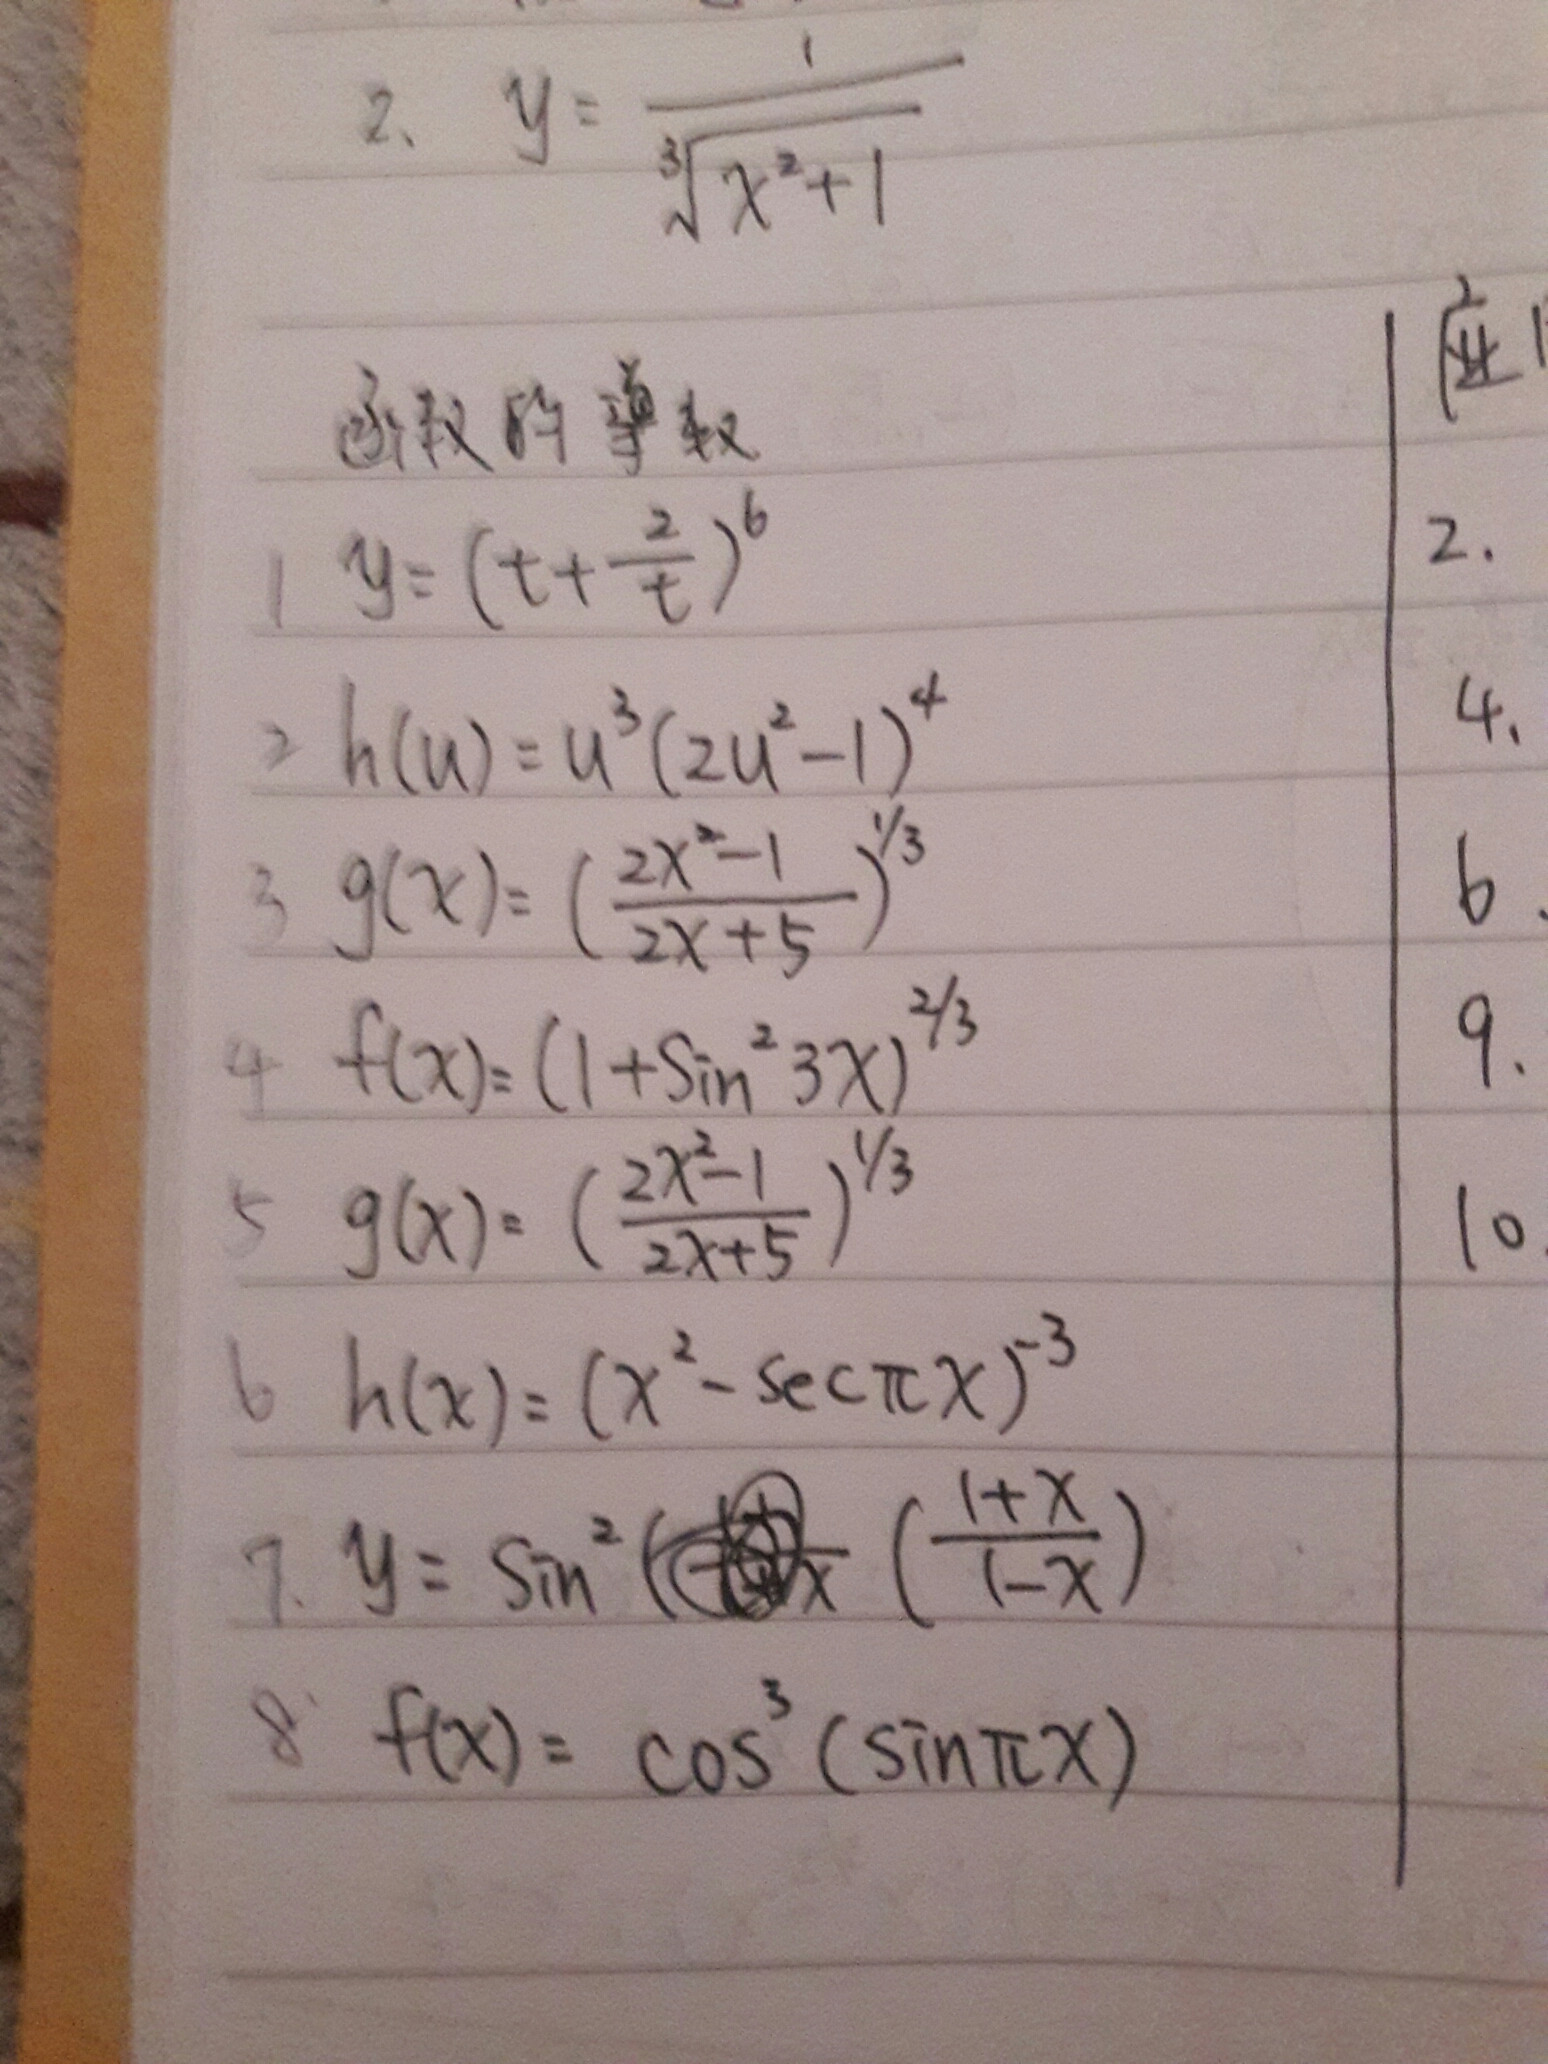 2. y = 1/∛(x²+1)
函数的导数
1 y = (t + 2/t)⁶
2 h(u) = u³(2u²-1)⁴
3 g(x) = ((2x²-1)/(2x+5))^1/3
4 f(x) = (1+Sin²3x)^2/3
5 g(x) = ((2x²-1)/(2x+5))^1/3
6 h(x) = (x²-secπx)⁻³
7. y = Sin² ((1+x)/(1-x))
8 f(x) = cos³(sinπx)
2.
4.
6.
9.
10.